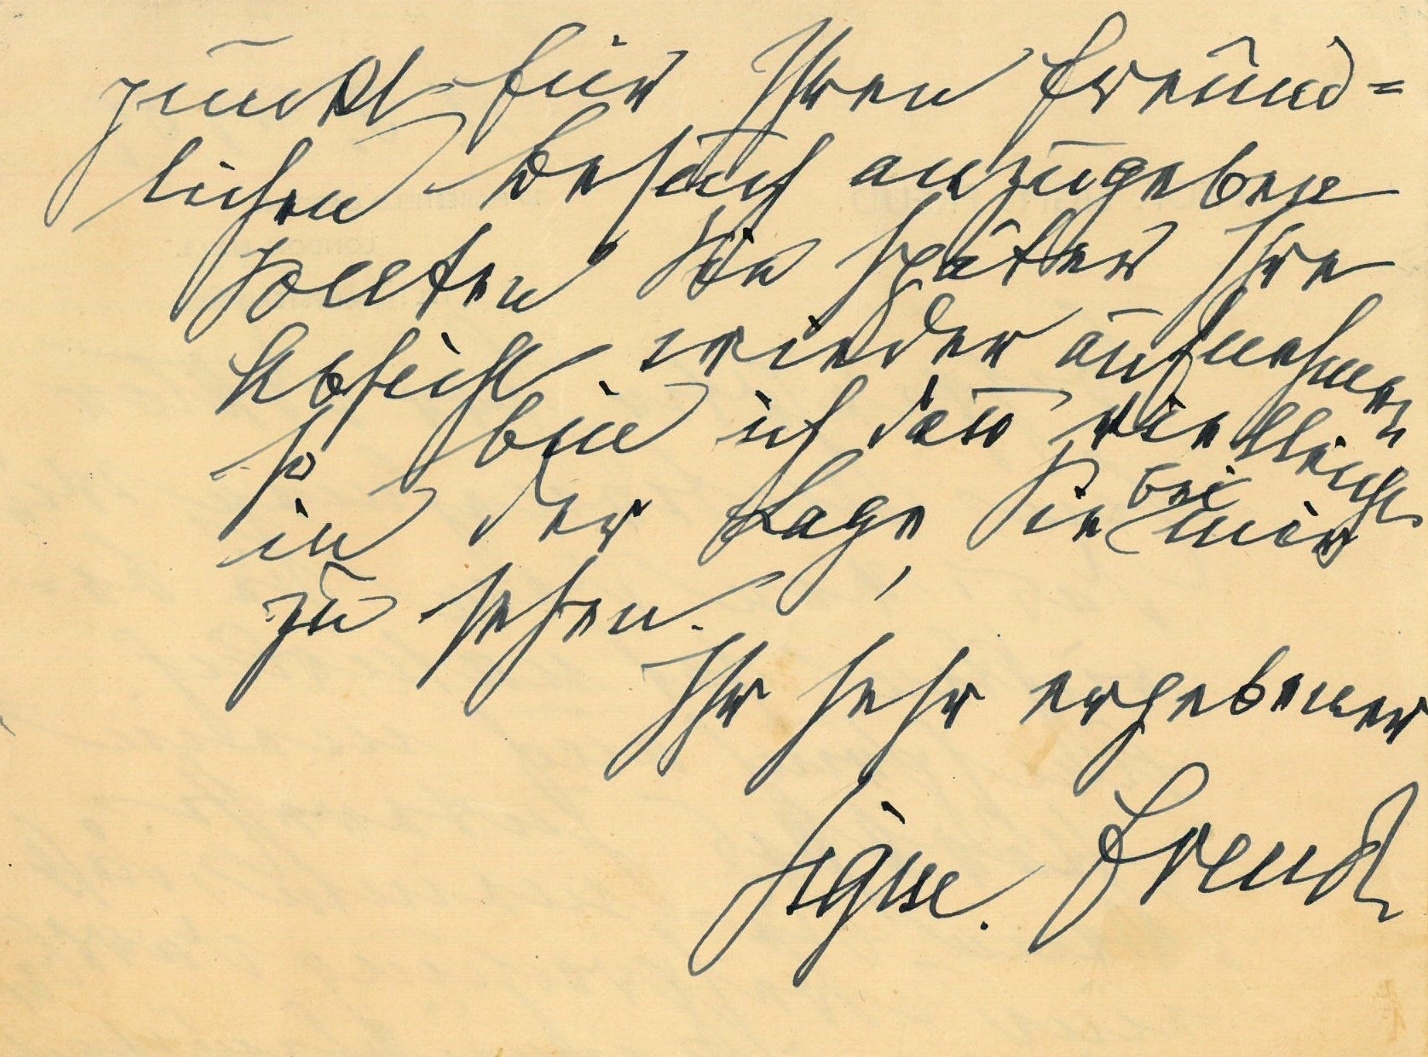 punkt für Ihren freund=
lichen Besuch anzugeben
sollten Sie später Ihre
Absicht wieder aufnehmen
so bin ich dann vielleicht
in der Lage, Sie bei mir
zu sehen.
Ihr sehr ergebener
Sigm. Freud